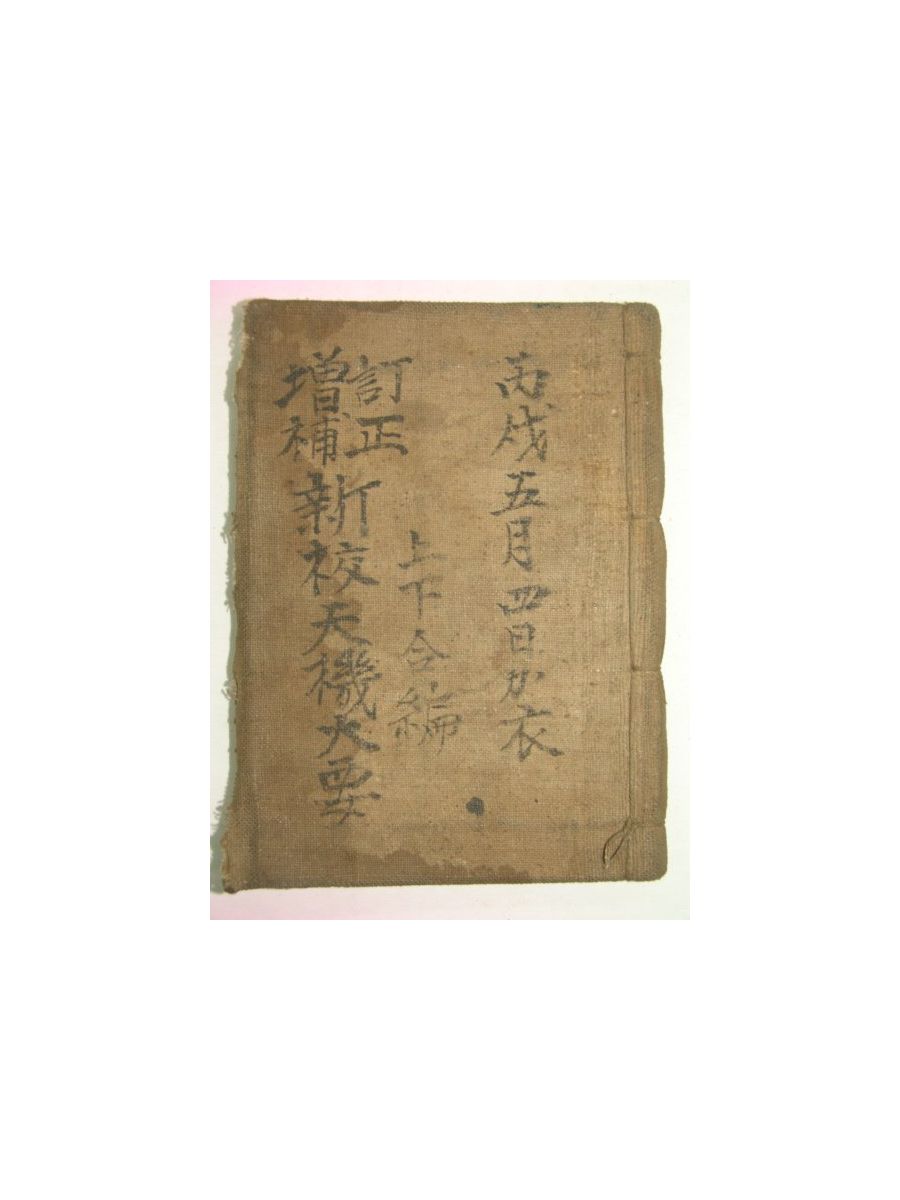 丙戌五月四日加衣
上下合編
訂正
增補
新校天機大要